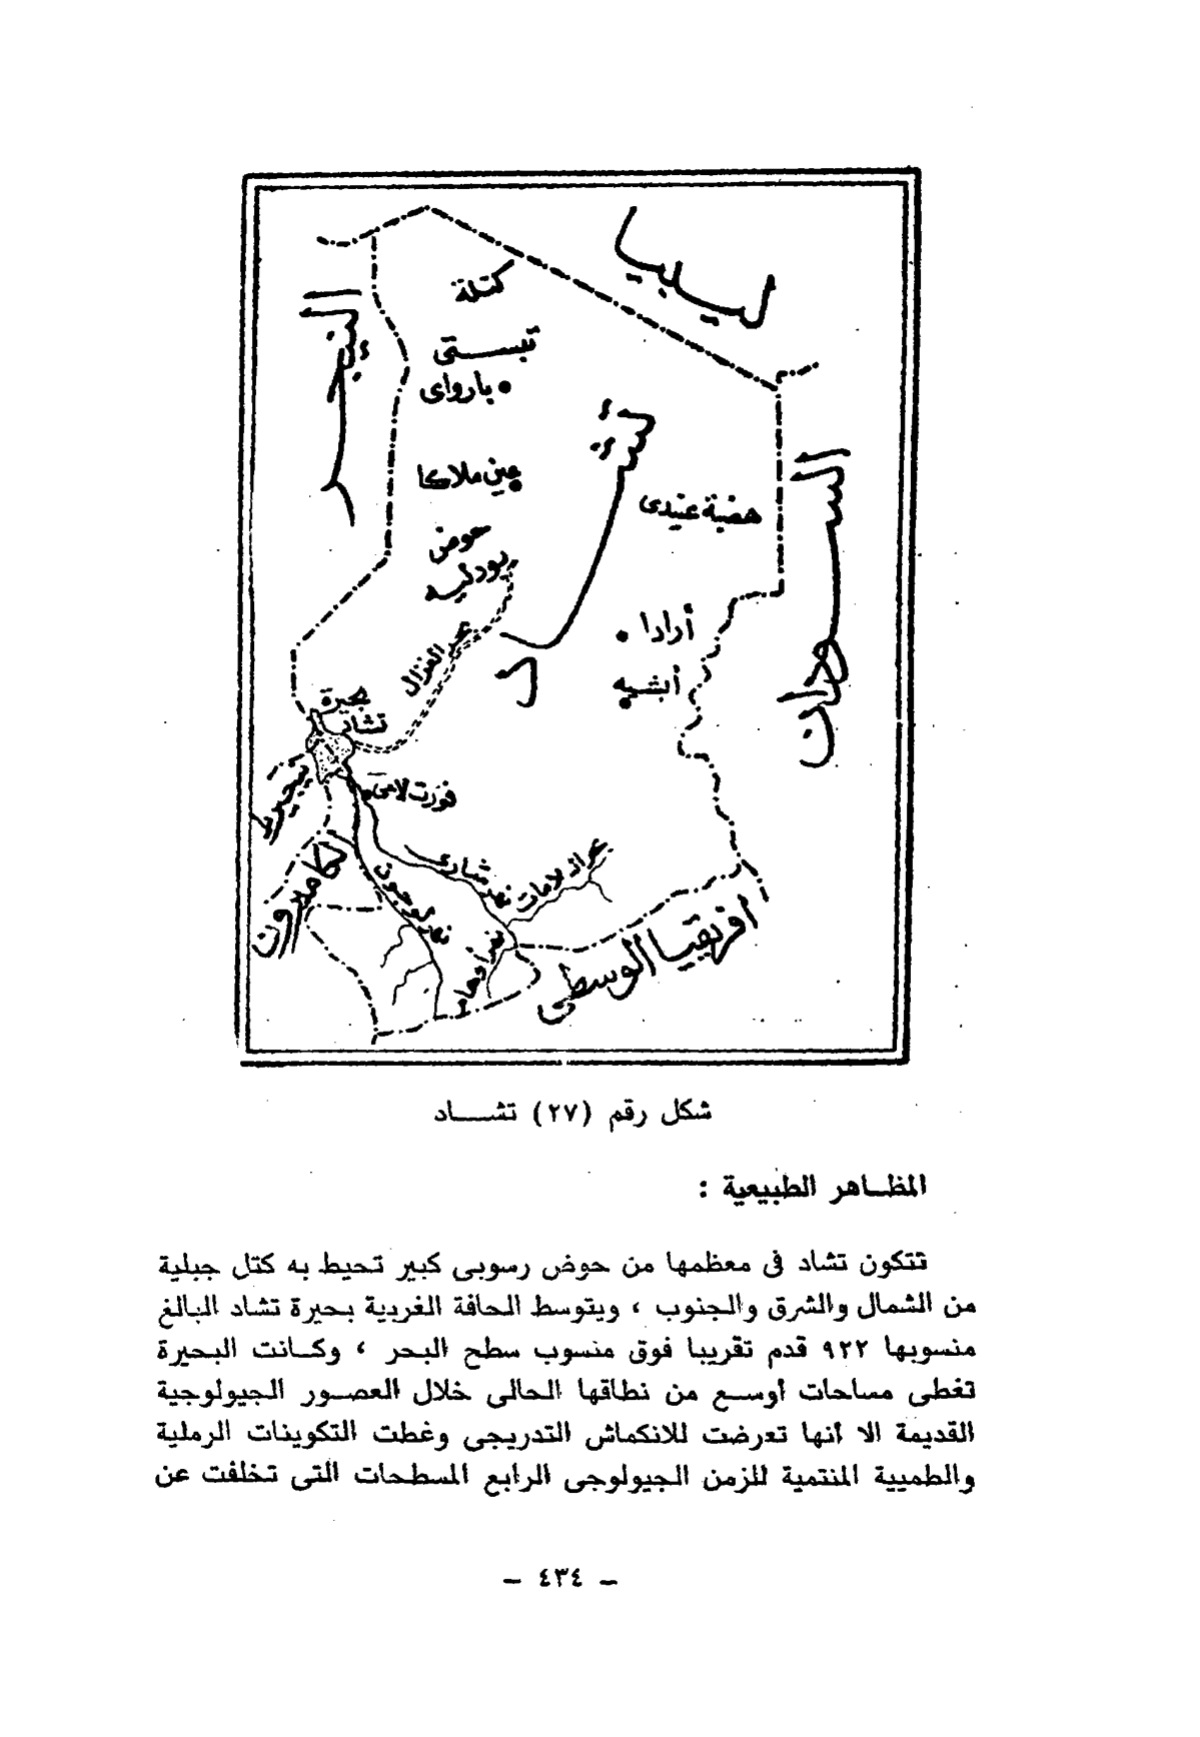 ليبيا
النيجر
كتلة
تبستي
بارواى
عين ملاكا
تشاد
السودان
هضبة عنيدى
حوض
بودليه
أرادا
أبشيه
بحر الغزال
بحيرة
تشاد
نيجيريا
فورت لامى
الكاميرون
نهر شارى
نهر لوجون
بحر الد سلامات
أفريقيا الوسطى
شكل رقم (٢٧) تشـــاد
المظـاهر الطبيعية :
تتكون تشاد فى معظمها من حوض رسوبى كبير تحيط به كتل جبلية
من الشمال والشرق والجنوب ، ويتوسط الحافة الغربية بحيرة تشاد البالغ
منسوبها ٩٢٢ قدم تقريبا فوق منسوب سطح البحر ، وكـانت البحيرة
تغطى مساحات أوسـع من نطاقها الحالى خلال العصـور الجيولوجية
القديمة الا أنها تعرضت للانكماش التدريجى وغطت التكوينات الرملية
والطميية المنتمية للزمن الجيولوجى الرابع المسطحات التى تخلفت عن
— ٤٣٤ —